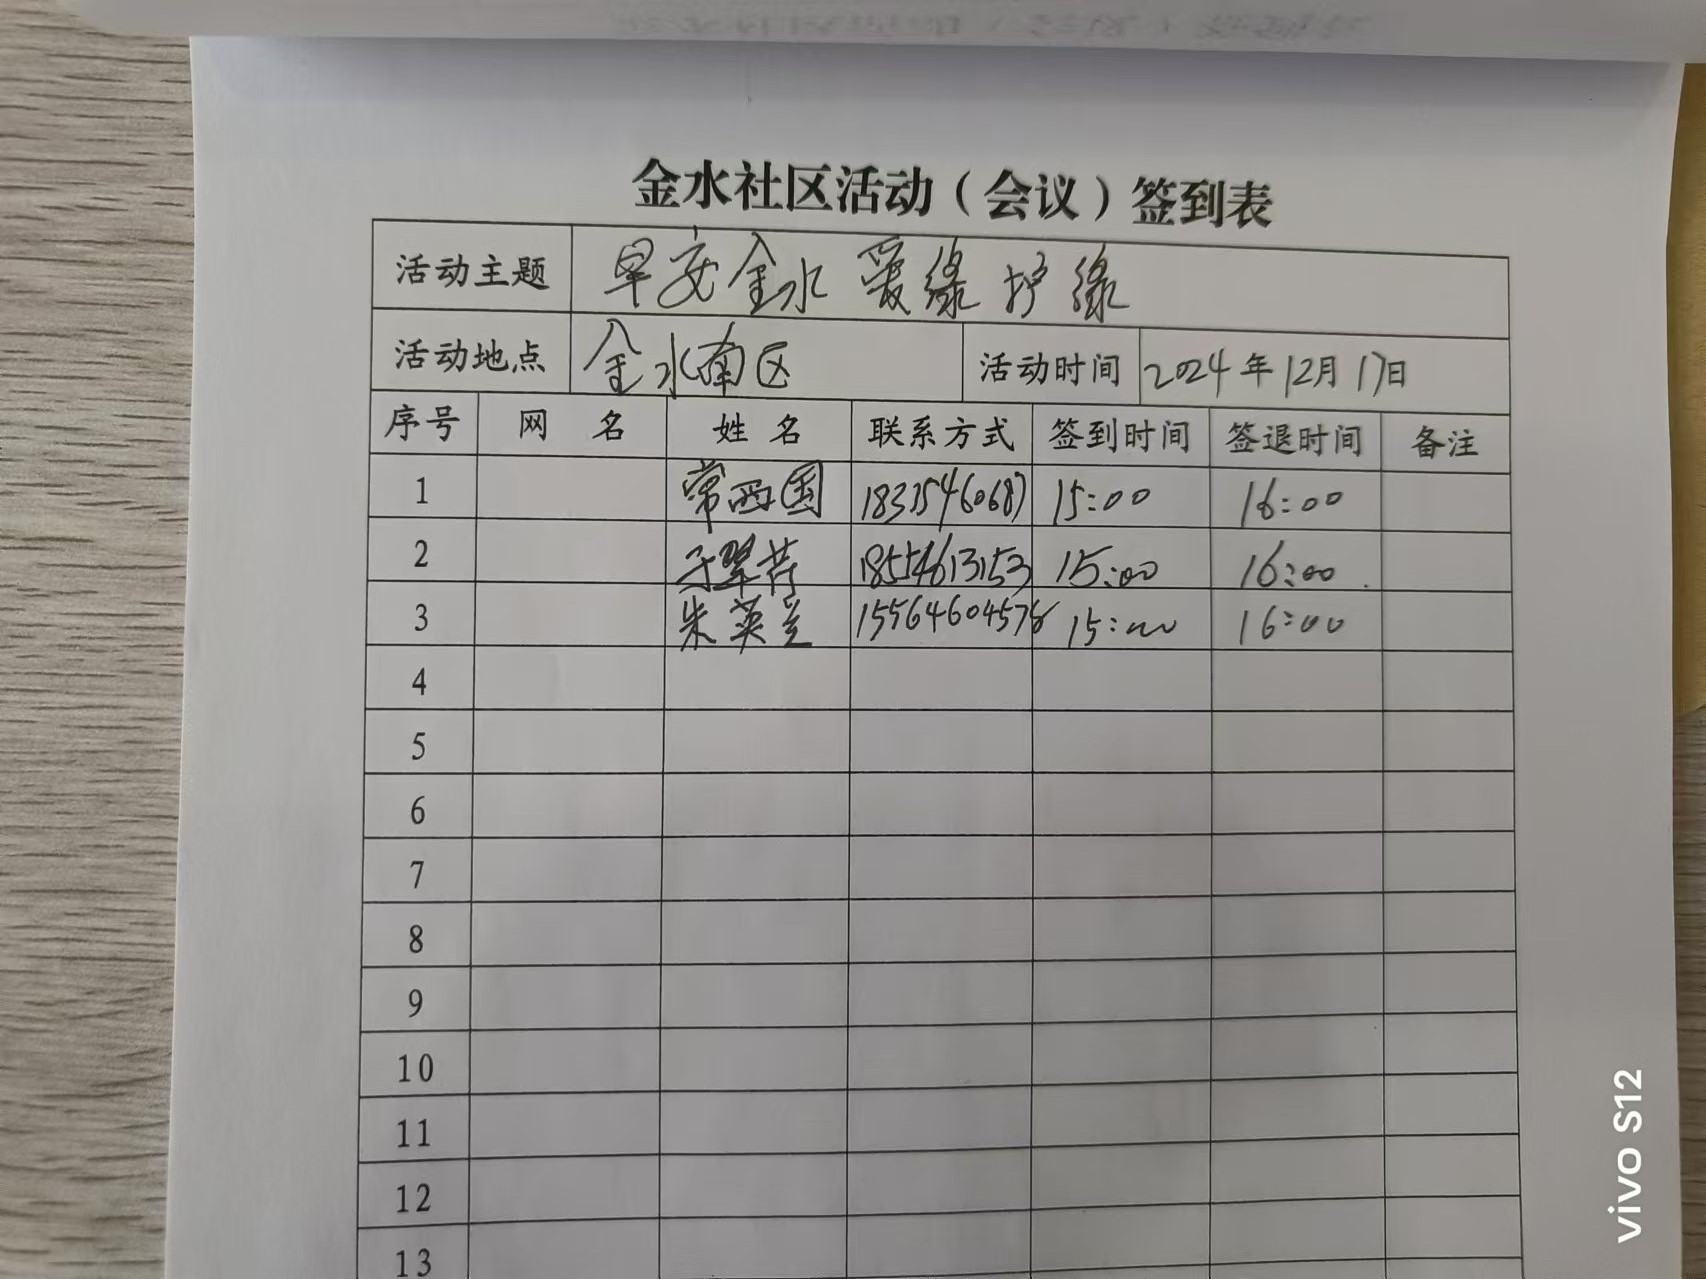 金水社区活动（会议）签到表
活动主题 早安金水 爱绿护绿
活动地点 金水南区 活动时间 2024年12月17日
序号 网 名 姓 名 联系方式 签到时间 签退时间 备注
1 常西国 18335460687 15:00 16:00
2 于翠荷 18554613153 15:00 16:00
3 朱英兰 15564604578 15:00 16:00
4
5
6
7
8
9
10
11
12
13
vivo S12